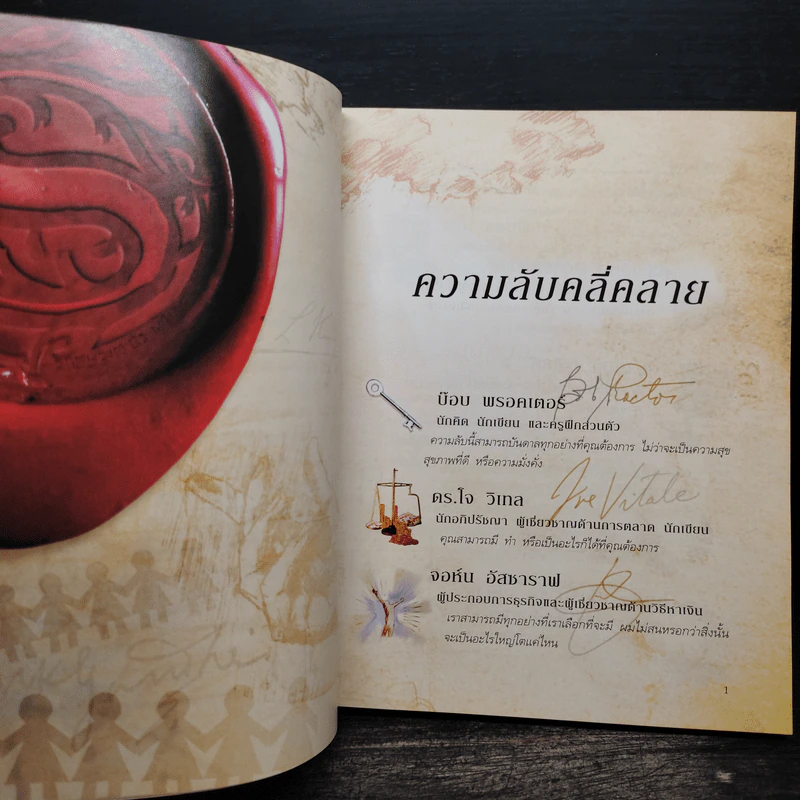 ความลับคลี่คลาย
บ๊อบ พรอคเตอร์
Bob Proctor
นักคิด นักเขียน และครูฝึกส่วนตัว
ความลับนี้สามารถบันดาลทุกอย่างที่คุณต้องการ ไม่ว่าจะเป็นความสุข
สุขภาพที่ดี หรือความมั่งคั่ง
ดร.โจ วิเทล
Joe Vitale
นักอภิปรัชญา ผู้เชี่ยวชาญด้านการตลาด นักเขียน
คุณสามารถมี ทำ หรือเป็นอะไรก็ได้ที่คุณต้องการ
จอห์น อัสซาราฟ
ผู้ประกอบการธุรกิจและผู้เชี่ยวชาญด้านวิธีหาเงิน
เราสามารถมีทุกอย่างที่เราเลือกที่จะมี ผมไม่สนหรอกว่าสิ่งนั้น
จะเป็นอะไรใหญ่โตแค่ไหน
1